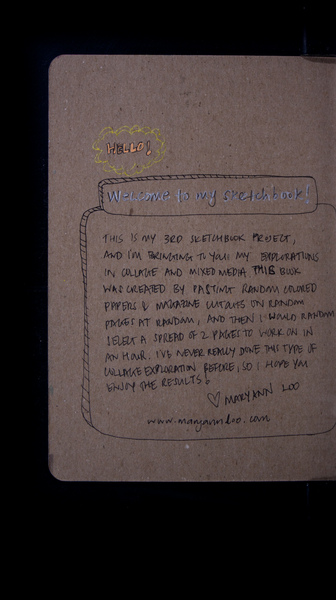 HELLO!
Welcome to my sketchbook!
THIS IS MY 3RD SKETCHBOOK PROJECT,
AND I'M BRINGING TO YOU MY EXPLORATIONS
IN COLLAGE AND MIXED MEDIA. THIS BOOK
WAS CREATED BY PASTING RANDOM COLORED
PAPERS & MAGAZINE CUTOUTS ON RANDOM
PAGES AT RANDOM, AND THEN I WOULD RANDOM
SELECT A SPREAD OF 2 PAGES TO WORK ON IN
AN HOUR. I'VE NEVER REALLY DONE THIS TYPE OF
COLLAGE EXPLORATION BEFORE, SO I HOPE YOU
ENJOY THE RESULTS!
♡ MARYANN LOO
www.maryannloo.com